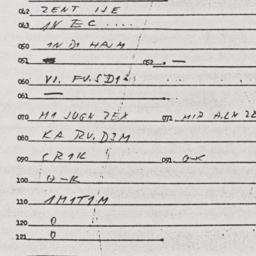 042 ZENT IJE
043 IN EC ....
050 IN DI HAJM
051 — 052 . —
060 VI. FU.SDI
061 —
070 MI JUGN ZEX 072 MIR A.LN ZE
080 KA RU.DIM
090 CRIK 091 O-K
100 O-K
110 IMITIM
120 0
121 0